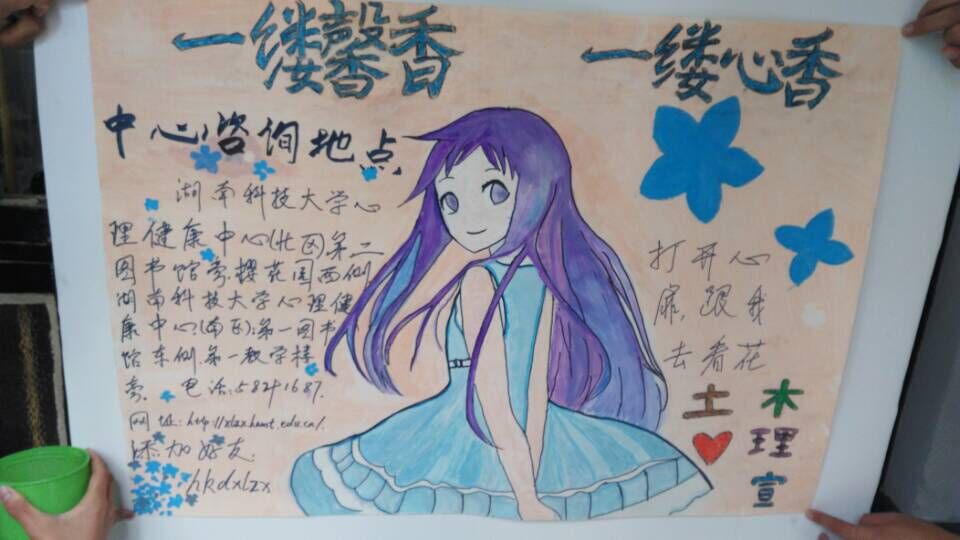 一缕馨香
一缕心香
中心咨询地点
湖南科技大学心
理健康中心(北区)第二
图书馆旁,樱花园西侧
湖南科技大学心理健
康中心(南区):第一图书
馆东侧.第一教学楼
旁. 电话:58291687.
网址:http://xlzx.hnust.edu.cn/.
添加好友:
hkdxlzx
打开心
扉,跟我
去看花
土 木
理
宣